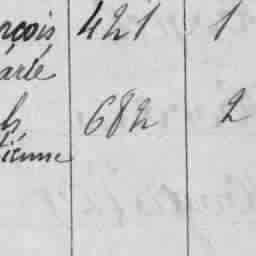 rçois 421 1
arie
682 2
ienne